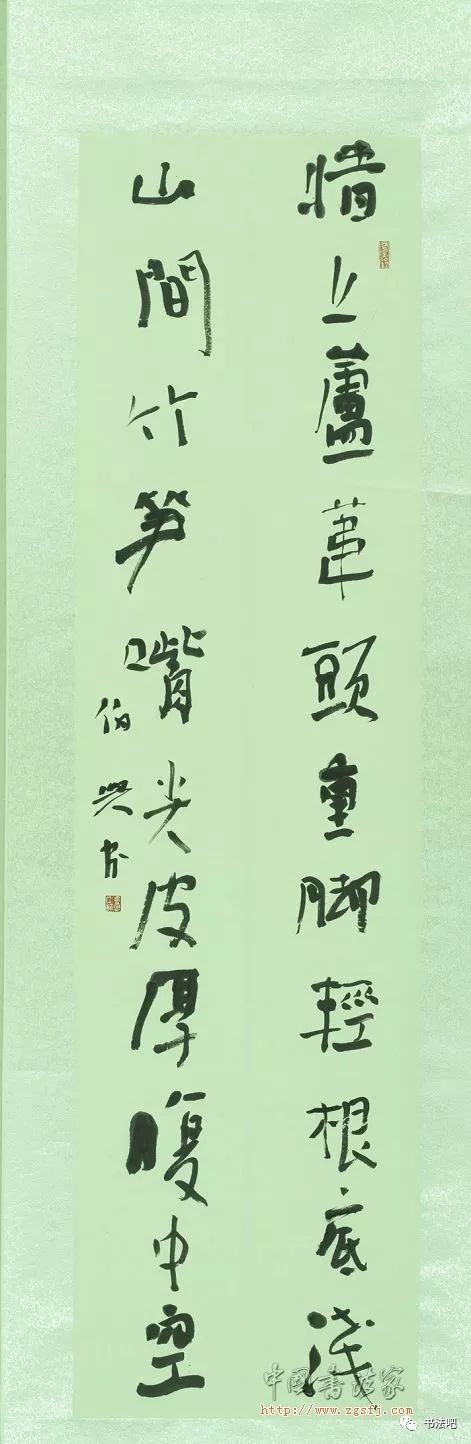 墙上蘆苇頭重脚輕根底浅
山間竹笋嘴尖皮厚腹中空
伯興书
中國書法家
http://www.zgsfj.com
书法吧